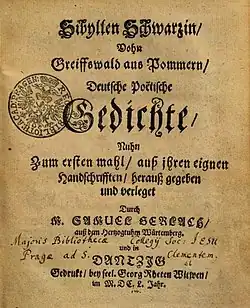 Sibyllen Schwarzin/
Vohn
Greiffswald aus Pommern/
Deutsche Poëtische
Gedichte/
Nuhn
Zum ersten mahl/ auß jhren eignen
Handschrifften/ herauß gegeben
und verleget
Durch
M. SAMUEL GERLACH/
auß dem Hertzogtuhm Würtemberg.
Majoris Bibliothecæ Collegij Soc: IESU
und in
Pragæ ad S. Clementem.
DANTZIG
Gedrukt/ bey seel. Georg Rheten Witwen/
im M. DC. L. Jahr.